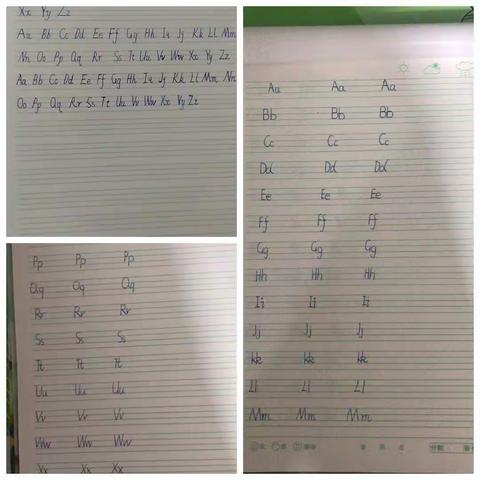 Xx Yy Zz
Aa Bb Cc Dd Ee Ff Gg Hh Ii Jj Kk Ll Mm
Nn Oo Pp Qq Rr Ss Tt Uu Vv Ww Xx Yy Zz
Aa Bb Cc Dd Ee Ff Gg Hh Ii Jj Kk Ll Mm Nn
Oo Pp Qq Rr Ss Tt Uu Vv Ww Xx Yy Zz
Pp Pp Pp
Qq Qq Qq
Rr Rr Rr
Ss Ss Ss
Tt Tt Tt
Uu Uu Uu
Vv Vv Vv
Ww Ww Ww
Xx Xx Xx
Aa Aa Aa
Bb Bb Bb
Cc Cc Cc
Dd Dd Dd
Ee Ee Ee
Ff Ff Ff
Gg Gg Gg
Hh Hh Hh
Ii Ii Ii
Jj Jj Jj
Kk Kk Kk
Ll Ll Ll
Mm Mm Mm